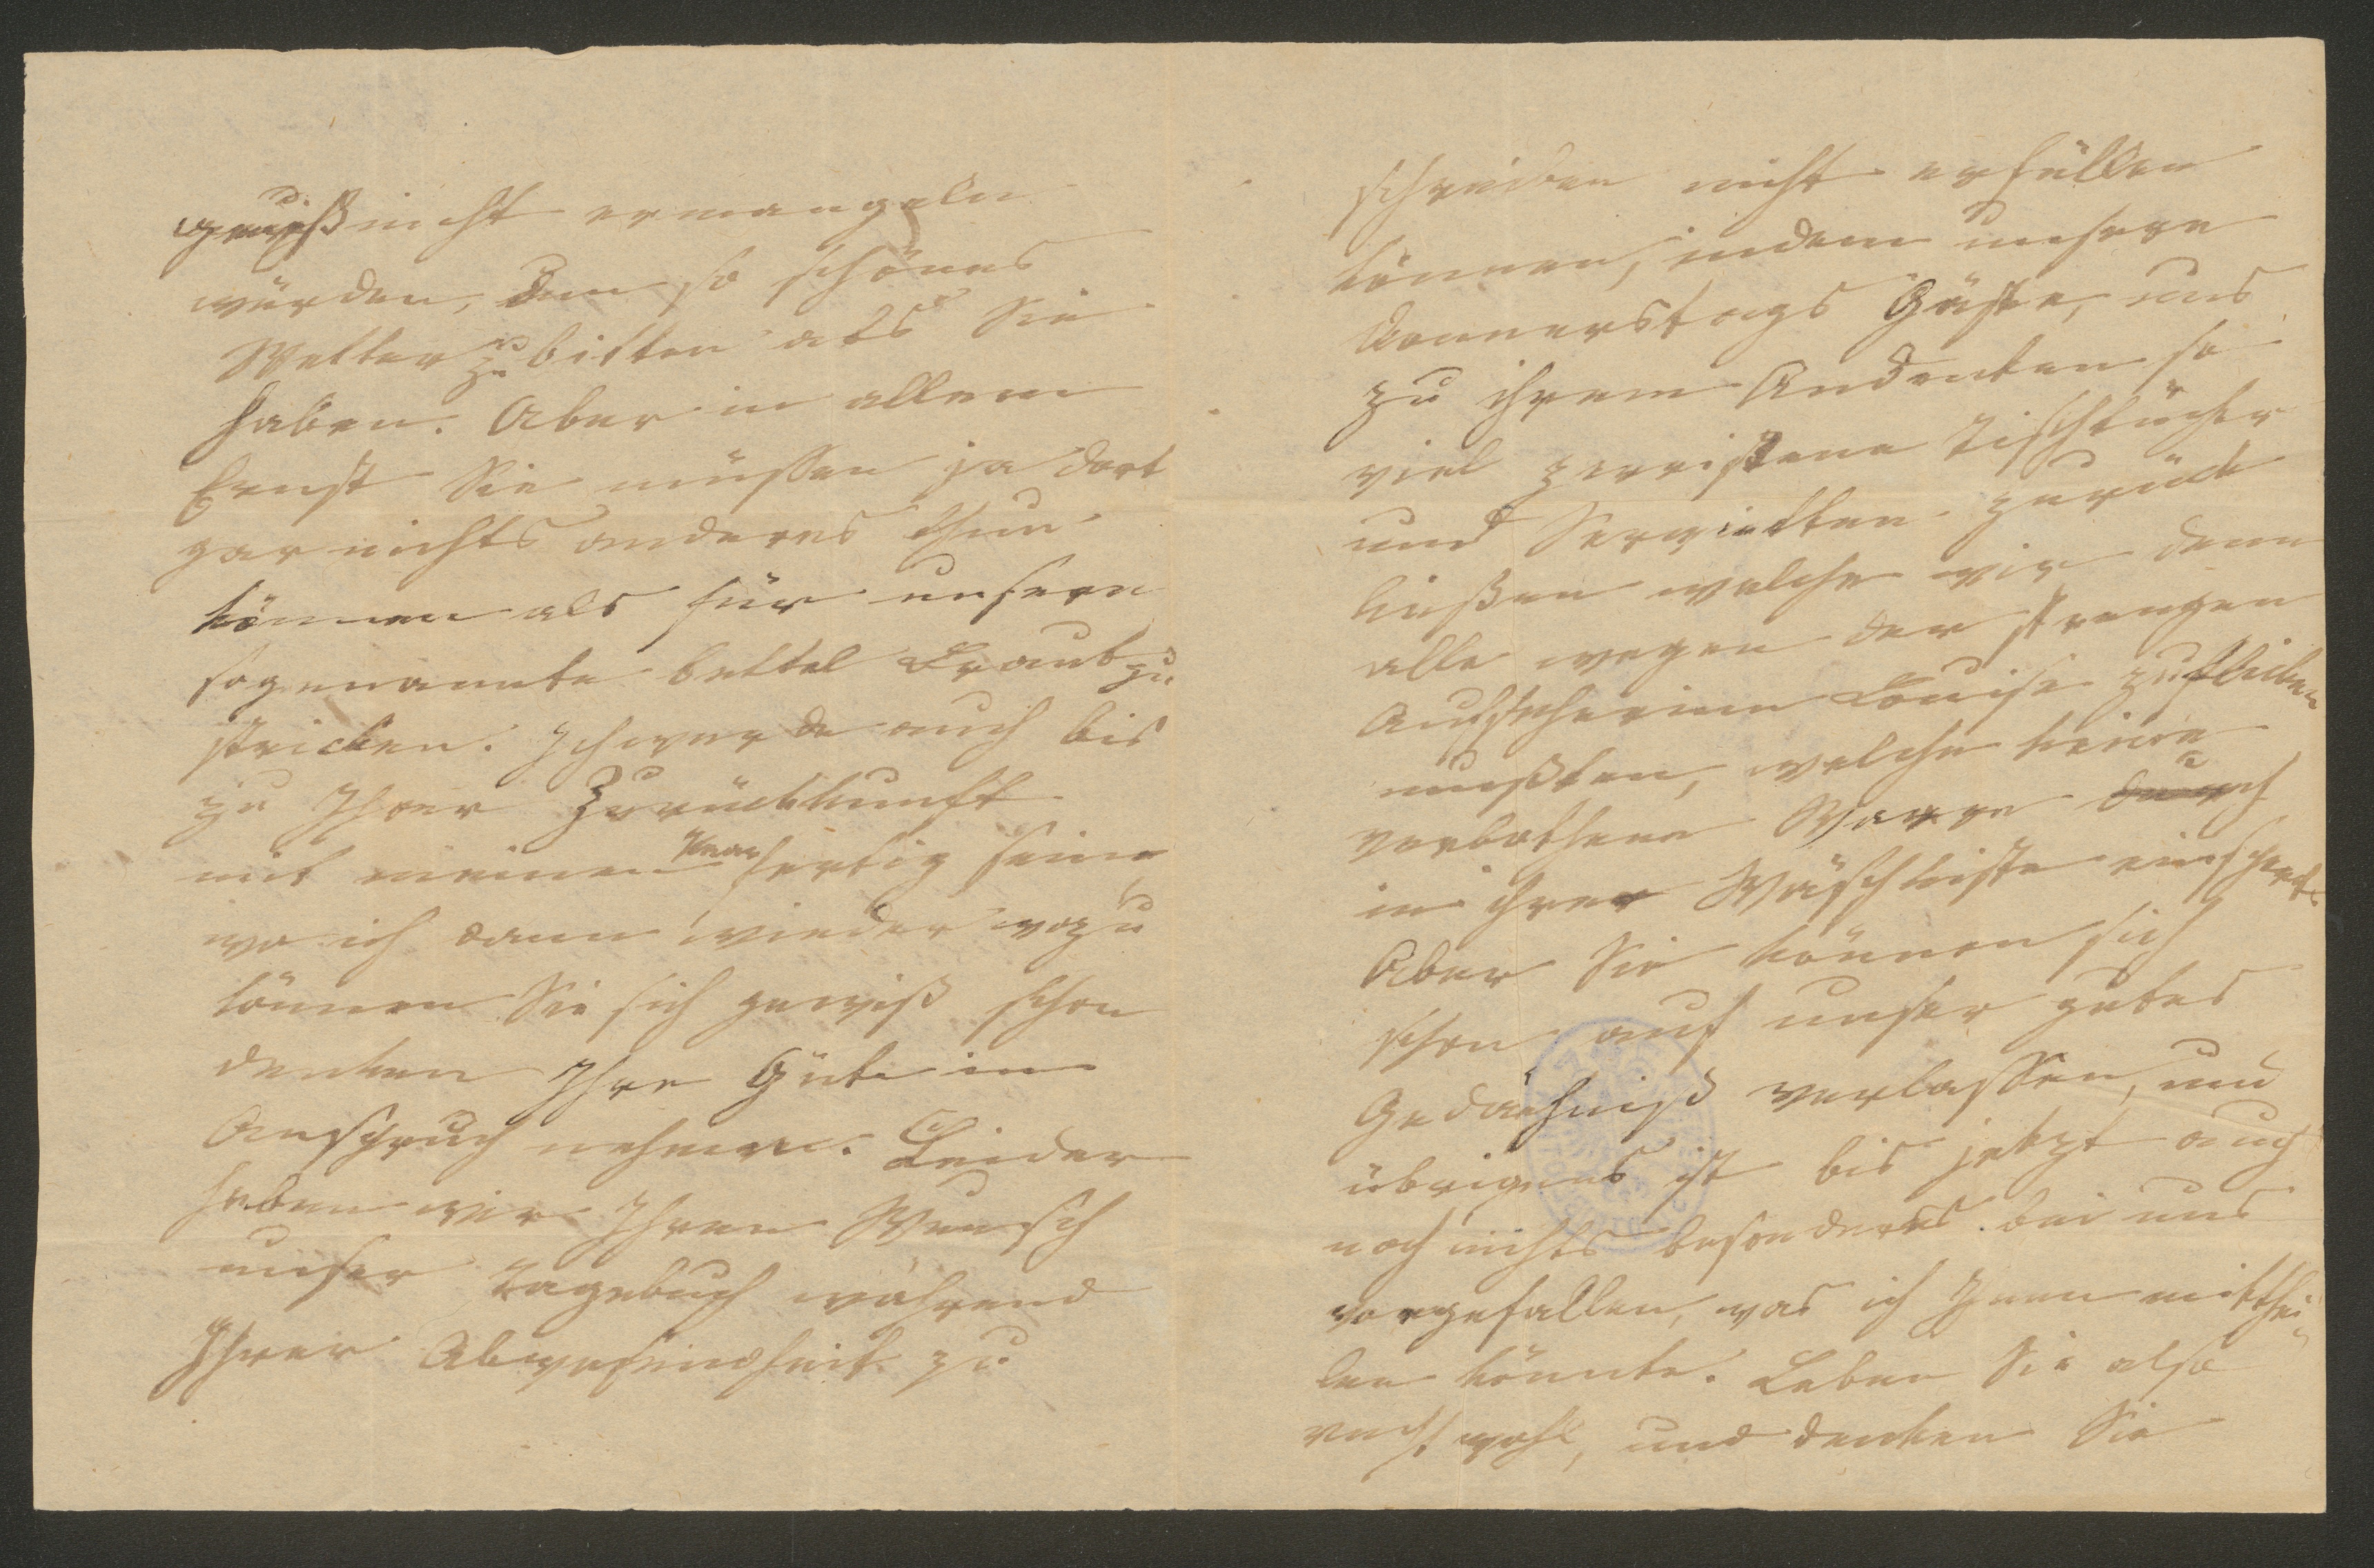 gewiß nicht ermangeln
würden, um so schönes
Wetter zu bitten als Sie
haben. Aber in allem
Ernst Sie müssen ja dort
gar nichts anderes thun
können als für unsern
sogenannte bettel Braut zu
stricken. Ich werde auch bis
zu Ihrer Zurückkunft
mit meinem fertig sein,
wo ich dann wieder wozu
können Sie sich gewiß schon
denken Ihre Güte in
Anspruch nehmen. Leider
haben wir Ihren Wunsch
unser Tagebuch während
Ihrer Abwesendheit zu
schreiben nicht erfüllen
können, indem unsere
Donnerstags Gäste, uns
zu ihrem Andenken so
viel zerrissene Tischtücher
und Servietten zurück
ließen welche wir denn
alle wegen der strengen
Aufseherinn Louise zuflicken
mußten, welche keine
verbothene Waare
in ihrer Wäschkiste
Aber Sie können sich
schon auf unser gutes
Gedächniß verlassen, und
übrigens ist bis jetzt auch
noch nichts besonderes bei uns
vorgefallen, was ich Ihnen mitthei-
len könnte. Leben Sie also
recht wohl, und denken Sie